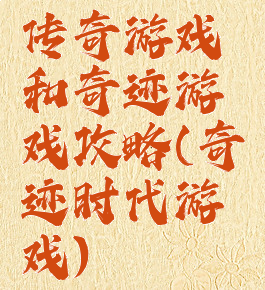 传奇游戏
和奇迹游
戏攻略(奇
迹时代游
戏)